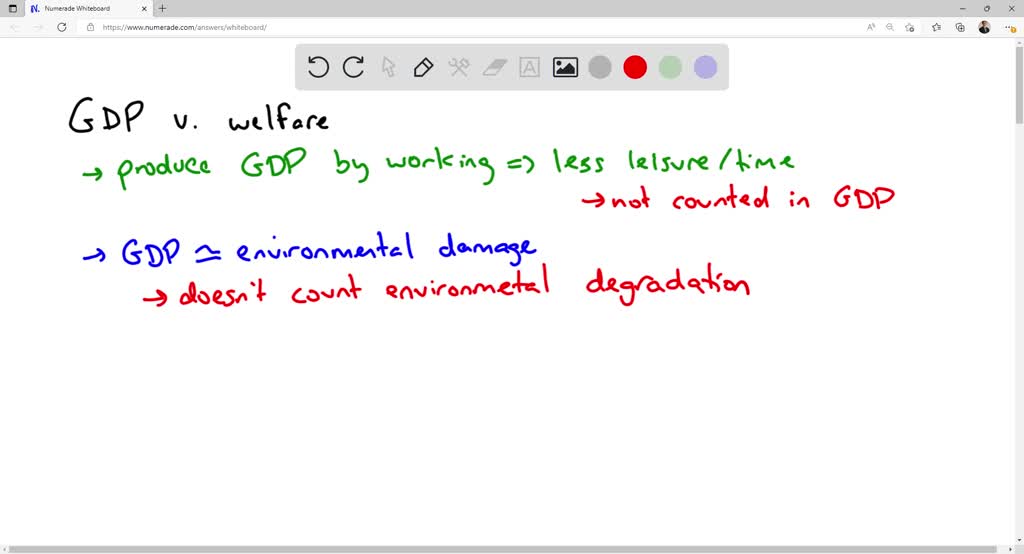 Numerade Whiteboard
https://www.numerade.com/answers/whiteboard/
GDP v. welfare
→ produce GDP by working => less leisure/time
→ not counted in GDP
→ GDP ≃ environmental damage
→ doesn't count environmetal degradation